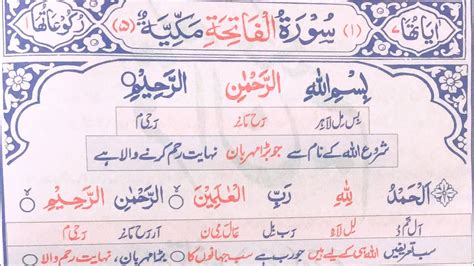 اٰیاتُهَا ۷ (۱) سُوْرَةُ الْفَاتِحَةِ مَكِّيَّةٌ (۵) رُكُوْعَاتُهَا
بِسْمِ اللهِ الرَّحْمٰنِ الرَّحِيْمِ
بِس مِل لَاہِر رَح مَانِر رَحِی م
شروع اللہ کے نام سے جو بڑا مہربان نہایت رحم کرنے والا ہے
اَلْحَمْدُ لِلّٰهِ رَبِّ الْعٰلَمِيْنَ الرَّحْمٰنِ الرَّحِيْمِ
لِل لَاہِ رَب بِل عَالَمِی ن رَحِی م
سب تعریفیں اللہ ہی کے لیے ہیں جو رب ہے سب جہانوں کا بڑا مہربان، نہایت رحم والا